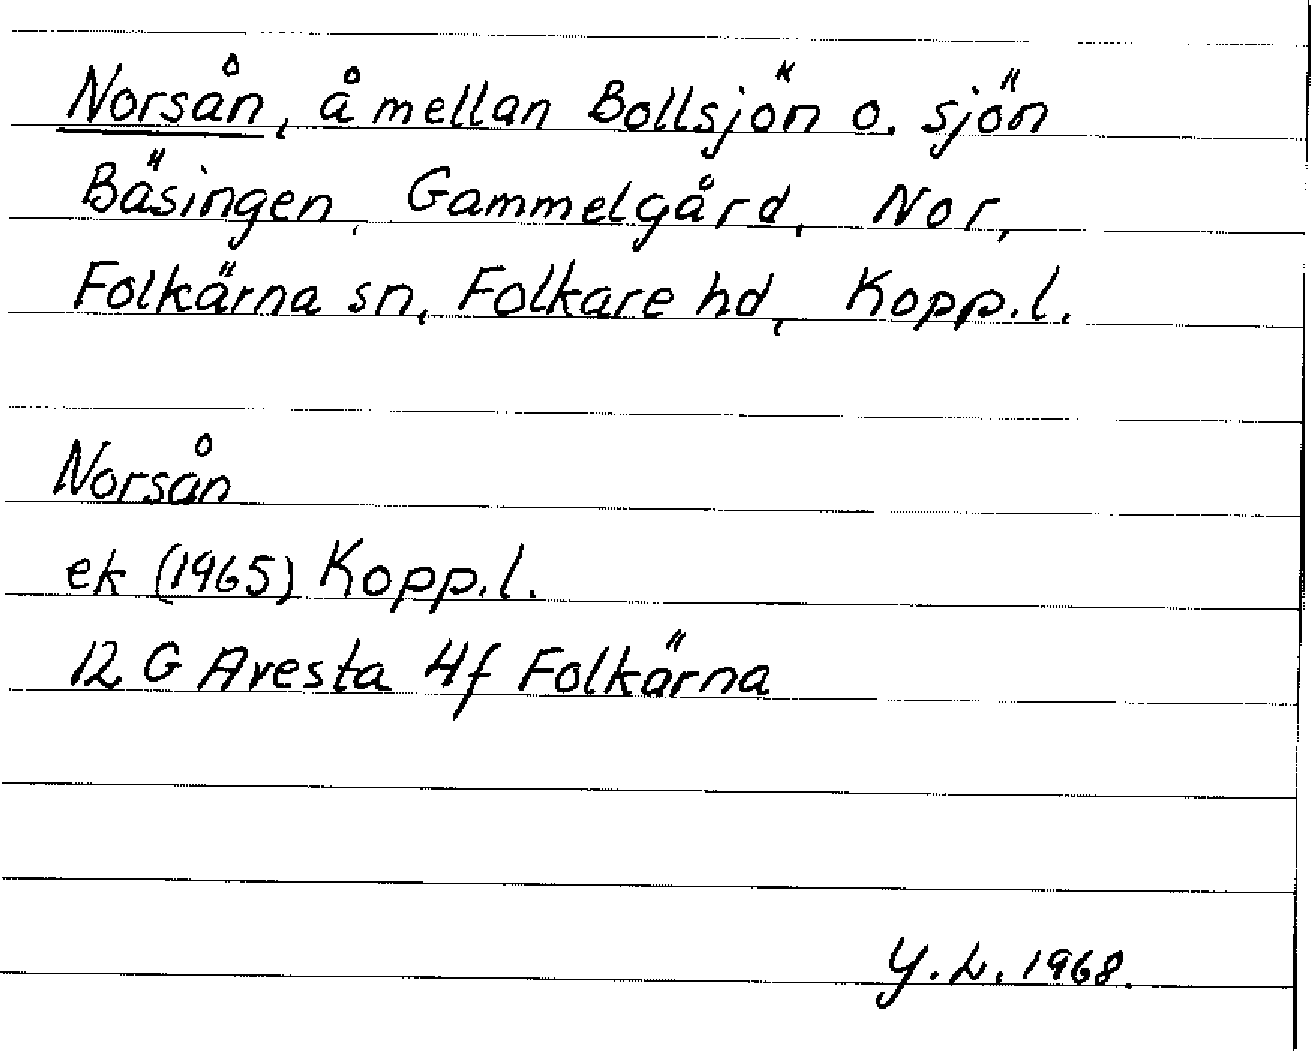 Norsån, å mellan Bollsjön o. sjön
Bäsingen, Gammelgård, Nor,
Folkärna sn, Folkare hd, Kopp.l.
Norsån
ek (1965) Kopp.l.
12 G Avesta 4f Folkärna
Y.L. 1968.